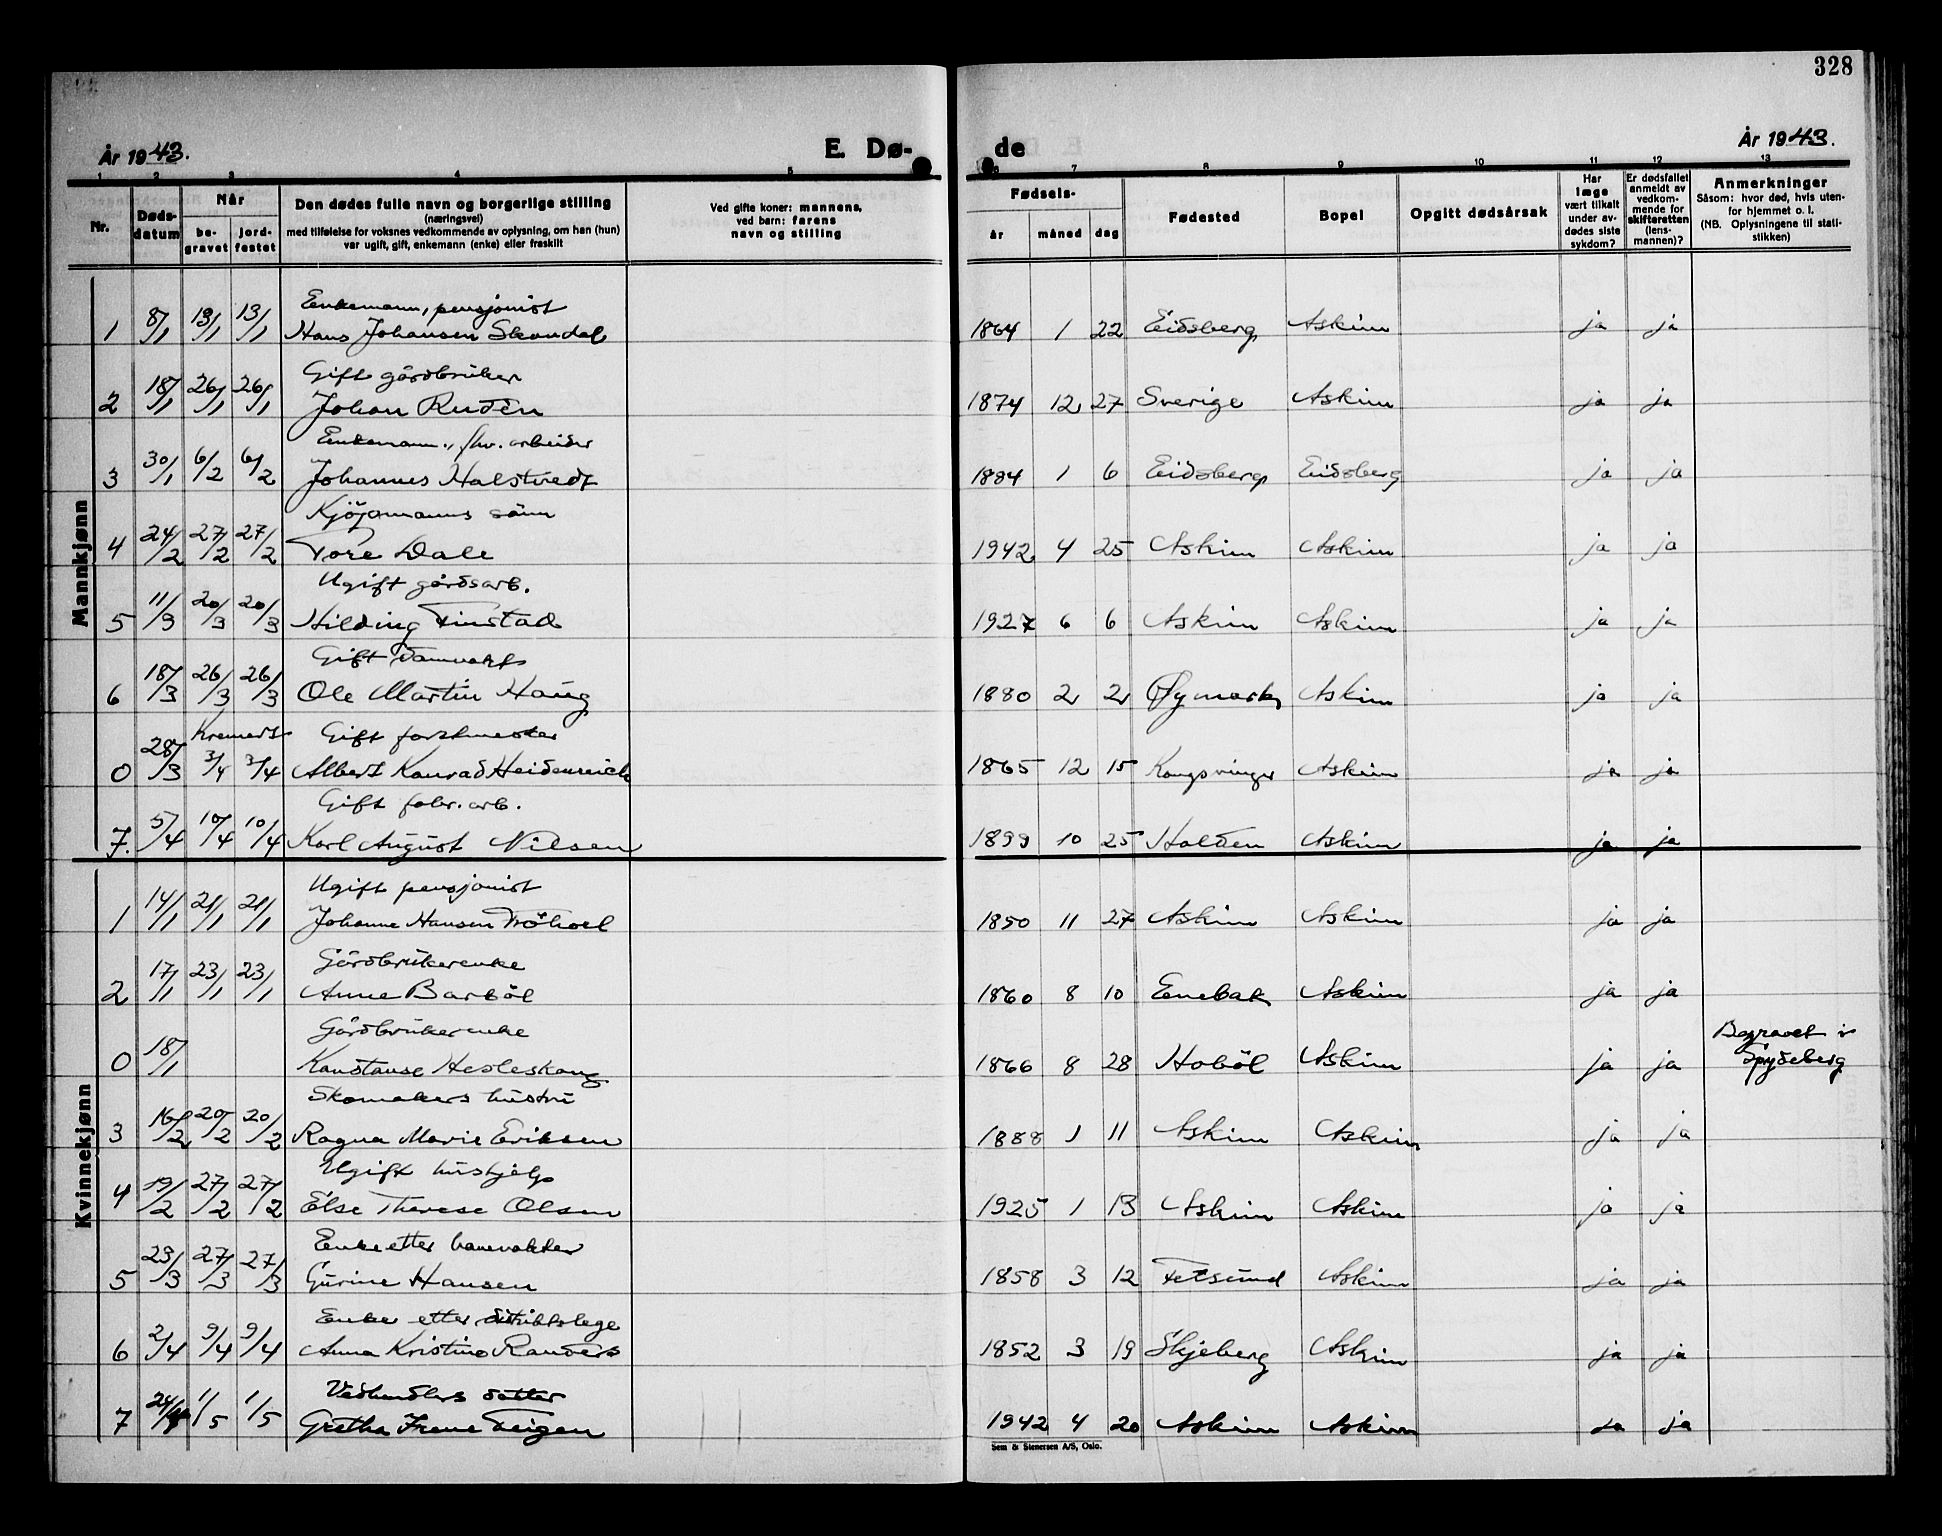 328
År 1943.
E. Dø-
de
År 1943.
1 2 3 4 5 6 7 8 9 10 11 12 13
Nr.
Døds-
datum
Når
be-
gravet
jord-
festet
Den dødes fulle navn og borgerlige stilling
(næringsvei)
med tilføielse for voksnes vedkommende av oplysning, om han (hun)
var ugift, gift, enkemann (enke) eller fraskilt
Ved gifte koner: mannens,
ved barn: farens
navn og stilling
Fødsels-
år måned dag
Fødested
Bopel
Opgitt dødsårsak
Har
læge
vært tilkalt
under av-
dødes siste
sykdom?
Er dødsfallet
anmeldt av
vedkom-
mende for
skifteretten
(lens-
mannen)?
Anmerkninger
Såsom: hvor død, hvis uten-
for hjemmet o. l.
(NB. Oplysningene til stati-
stikken)
Mannkjønn
Enkemann, pensjonist
1 8/1 13/1 13/1 Hans Johansen Skandal 1864 1 22 Eidsberg Askim ja ja
Gift gårdbruker
2 18/1 26/1 26/1 Johan Rudèn 1874 12 27 Sverige Askim ja ja
Enkemann., fhv. arbeider
3 30/1 6/2 6/2 Johannes Halstvedt 1884 1 6 Eidsberg Eidsberg ja ja
Kjöpmanns sönn
4 24/2 27/2 27/2 Tore Dale 1942 4 25 Askim Askim ja ja
Ugift gårdsarb.
5 11/3 20/3 20/3 Hilding Finstad 1927 6 6 Askim Askim ja ja
Gift damvakt
6 18/3 26/3 26/3 Ole Martin Haug 1880 2 2 Øymark Askim ja ja
Kremert Gift forstmester
0 28/3 3/4 3/4 Albert Konrad Heidenreich 1865 12 15 Kongsvinger Askim ja ja
Gift fabr. arb.
7. 5/4 10/4 10/4 Karl August Nilsen 1899 10 25 Halden Askim ja ja
Kvinnekjønn
Ugift pensjonist
1 14/1 21/1 21/1 Johanne Hansen Tröhoel 1850 11 27 Askim Askim ja ja
Gårdbrukerenke
2 17/1 23/1 23/1 Anne Barböl 1860 8 10 Enebak Askim ja ja
Gårdbrukerenke
0 18/1 Konstanse Hesleskaug 1866 8 28 Hoböl Askim ja ja Begravet i
Spydeberg
Skomakers hustru
3 16/2 20/2 20/2 Ragna Marie Eriksen 1888 1 11 Askim Askim ja ja
Ugift hushjelp
4 19/2 27/2 27/2 Else Therese Olsen 1925 1 13 Askim Askim ja ja
Enke etter banevokter
5 23/3 27/3 27/3 Gurine Hansen 1858 3 12 Fetsund Askim ja ja
Enke etter distriktslege
6 2/4 9/4 9/4 Anna Kristine Randers 1852 3 19 Skjeberg Askim ja ja
Vedhandlers datter
7 24/4 1/5 1/5 Gretha Irene Teigen 1942 4 20 Askim Askim ja ja
Sem & Stenersen A/S, Oslo.